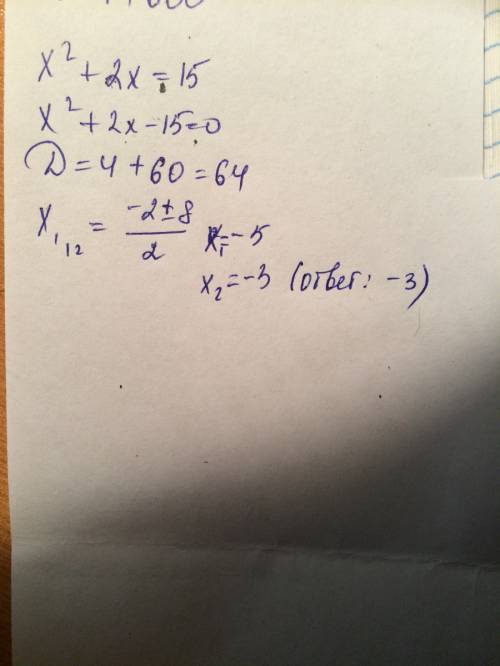 x² + 2x = 15
x² + 2x - 15 = 0
D = 4 + 60 = 64
x₁,₂ = (-2 ± 8) / 2 x₁ = -5
x₂ = -3 (ответ: -3)